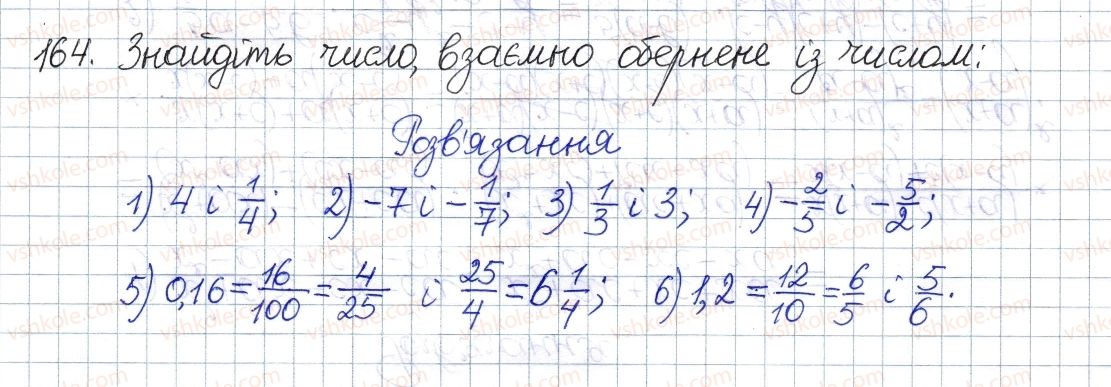 164. Знайдіть число, взаємно обернене із числом:
Розв'язання
1) 4 і 1/4; 2) -7 і -1/7; 3) 1/3 і 3; 4) -2/5 і -5/2;
5) 0,16 = 16/100 = 4/25 і 25/4 = 6 1/4; 6) 1,2 = 12/10 = 6/5 і 5/6.